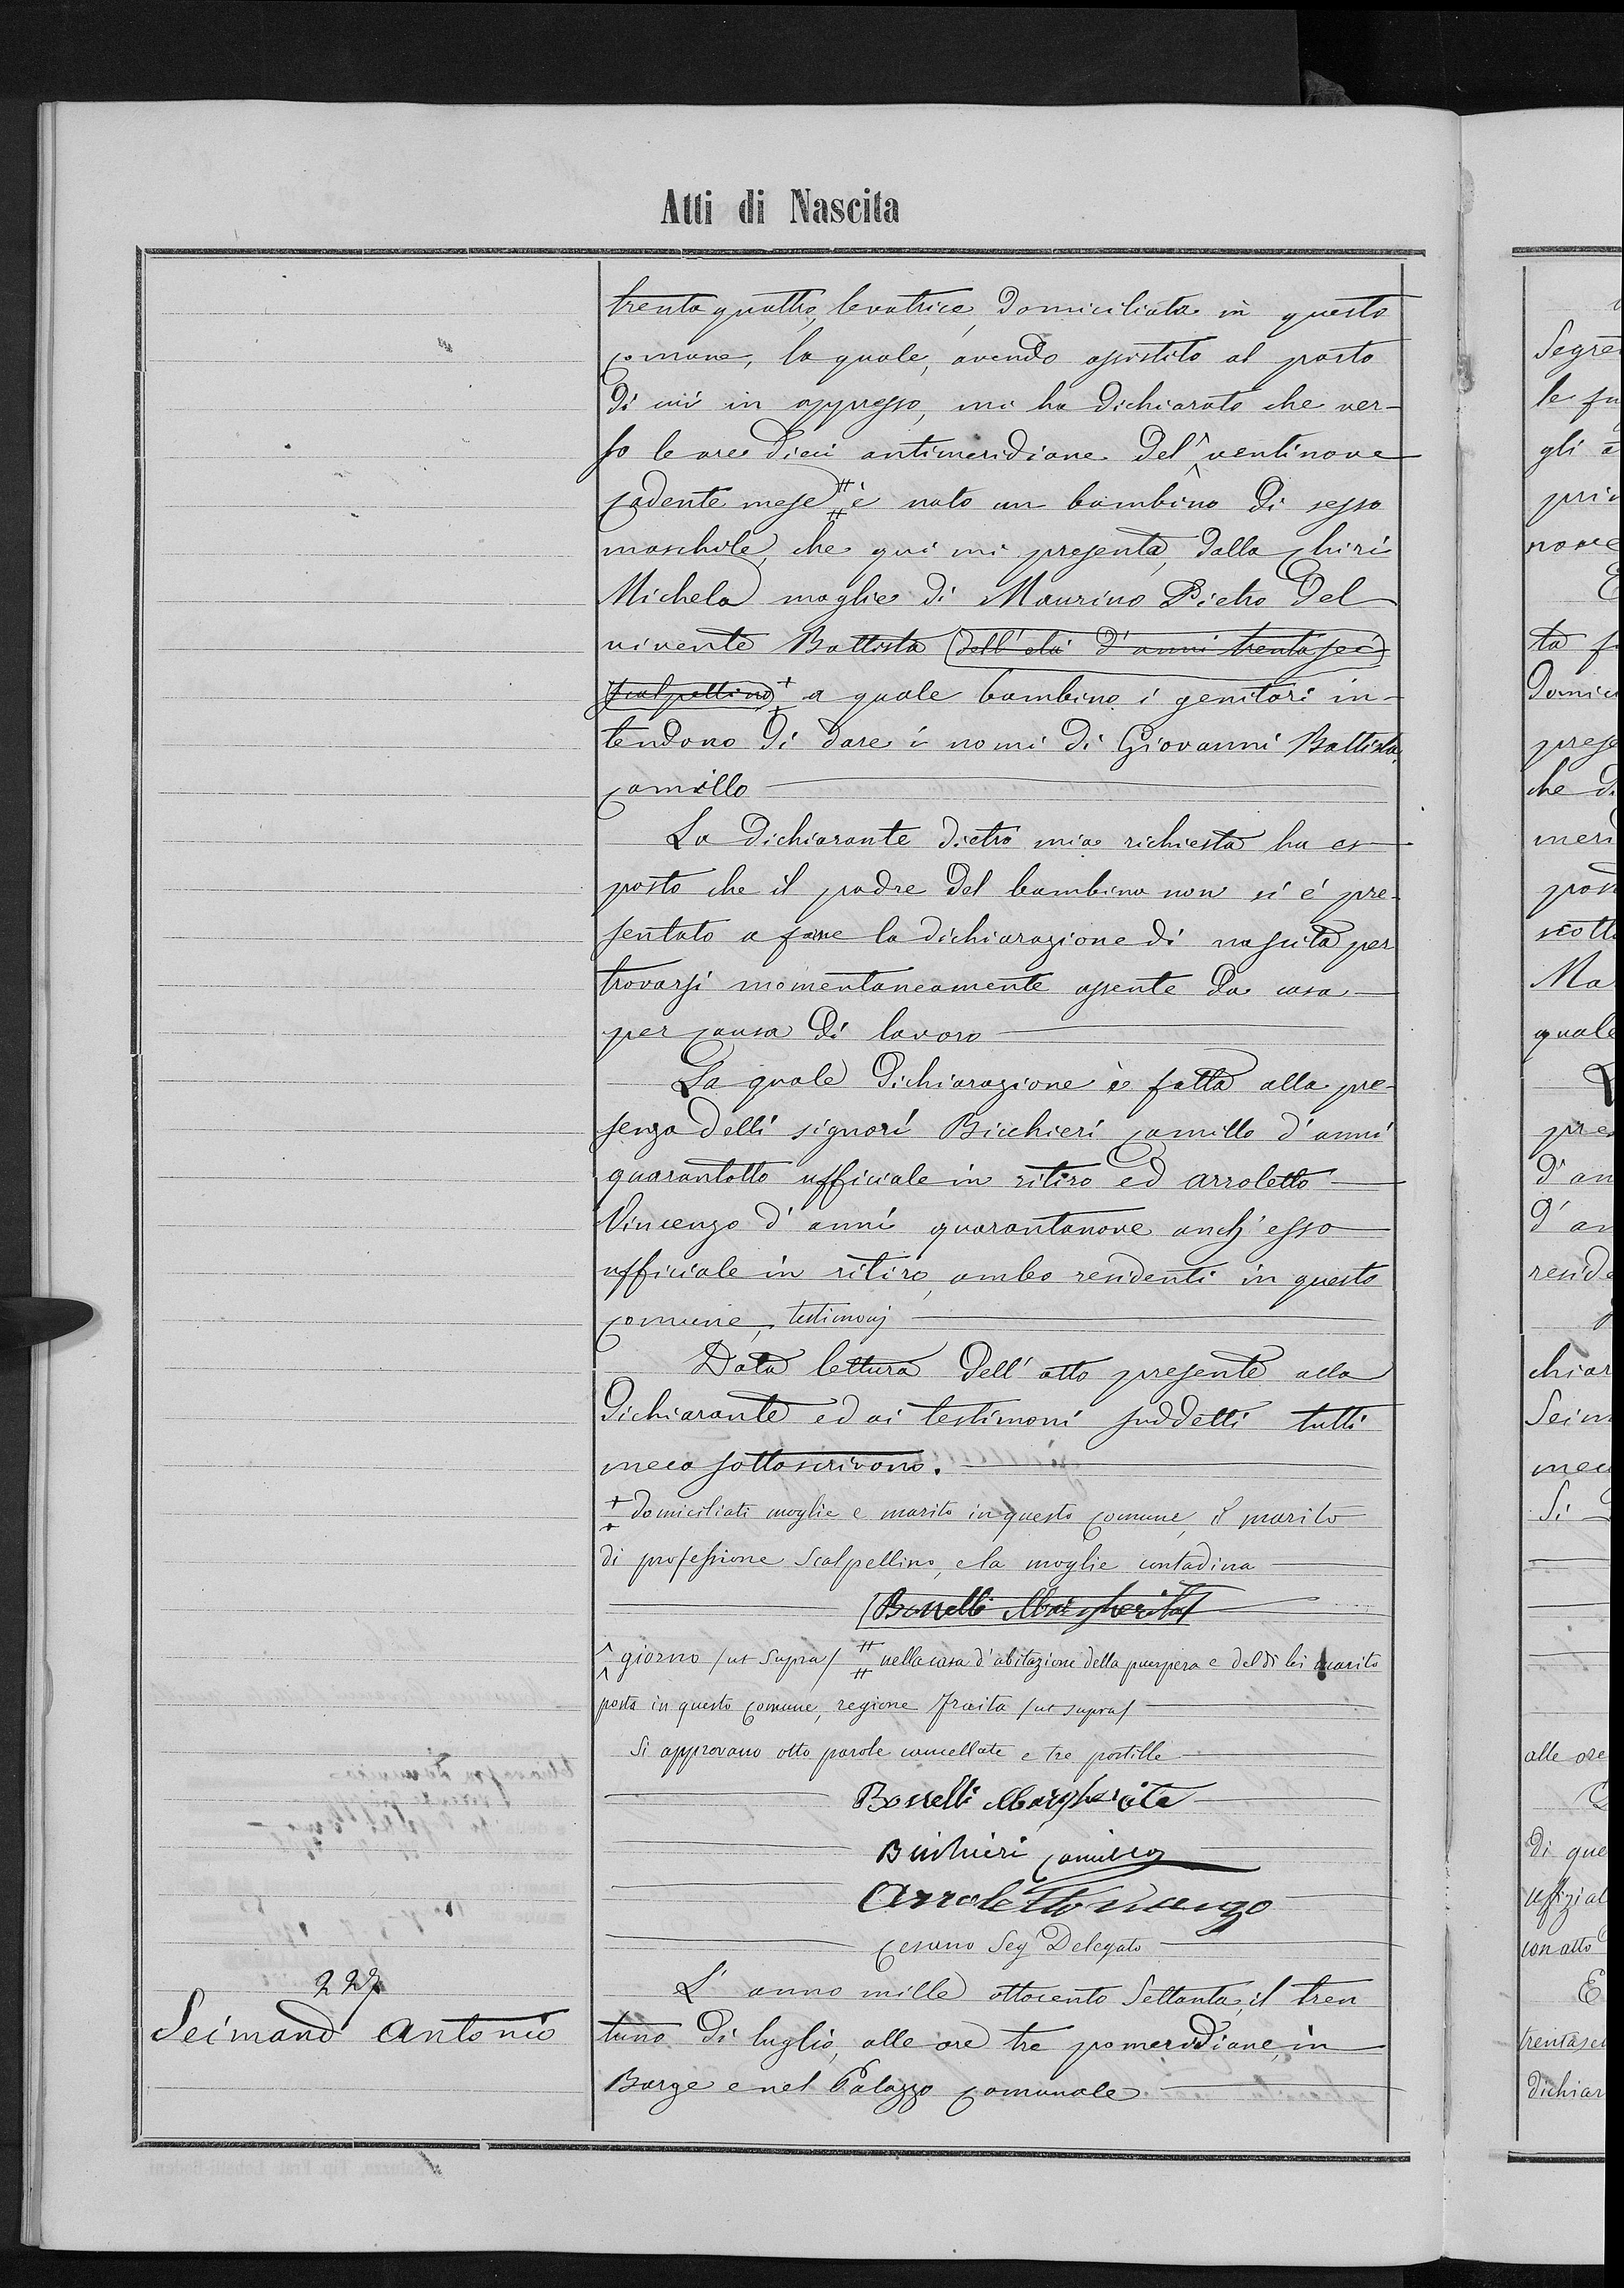 Atti di Nascita
trentaquattro, levatrice, domiciliata in questo
comune, la quale, avendo assistito al parto
di cui in appresso, mi ha dichiarato che ver-
so le ore dieci antimeridiane del ^ ventinove
cadente mese # è nato un bambino di sesso
maschile, che qui mi presenta, dalla Chiri
Michela moglie di Maurino Pietro del
vivente Battista (dell'età d'anni trentasei
scalpellino) + a quale bambino i genitori in-
tendono di dare i nomi di Giovanni Battista,
Camillo
La dichiarante dietro mia richiesta ha es-
posto che il padre del bambino non si è pre-
sentato a fare la dichiarazione di nascita per
trovarsi momentaneamente assente da casa
per causa di lavoro
La quale dichiarazione è fatta alla pre-
senza delli signori Bicchieri Camillo d'anni
quarantotto ufficiale in ritiro ed Arroletto
Vincenzo d'anni quarantanove anch'esso
ufficiale in ritiro, ambo residenti in questo
comune, testimonj
Data lettura dell'atto presente alla
dichiarante ed ai testimoni suddetti tutti
meco sottoscrivono.
+ domiciliati moglie e marito in questo comune, il marito
di professione Scalpellino, e la moglie contadina
Borrelli Margherita
^ giorno /ut supra/ # nella casa d'abitazione della puerpera e del di lei marito
posta in questo comune, regione Fraita /ut supra/
Si approvano otto parole cancellate e tre postille
Borrelli Margherita
Bichieri Camillo
Arroletto Vincenzo
Cesano Seg. Delegato
227
Seimand Antonio
L'anno mille ottocento settanta, il tren
tuno di luglio, alle ore tre pomeridiane, in
Barge e nel Palazzo Comunale